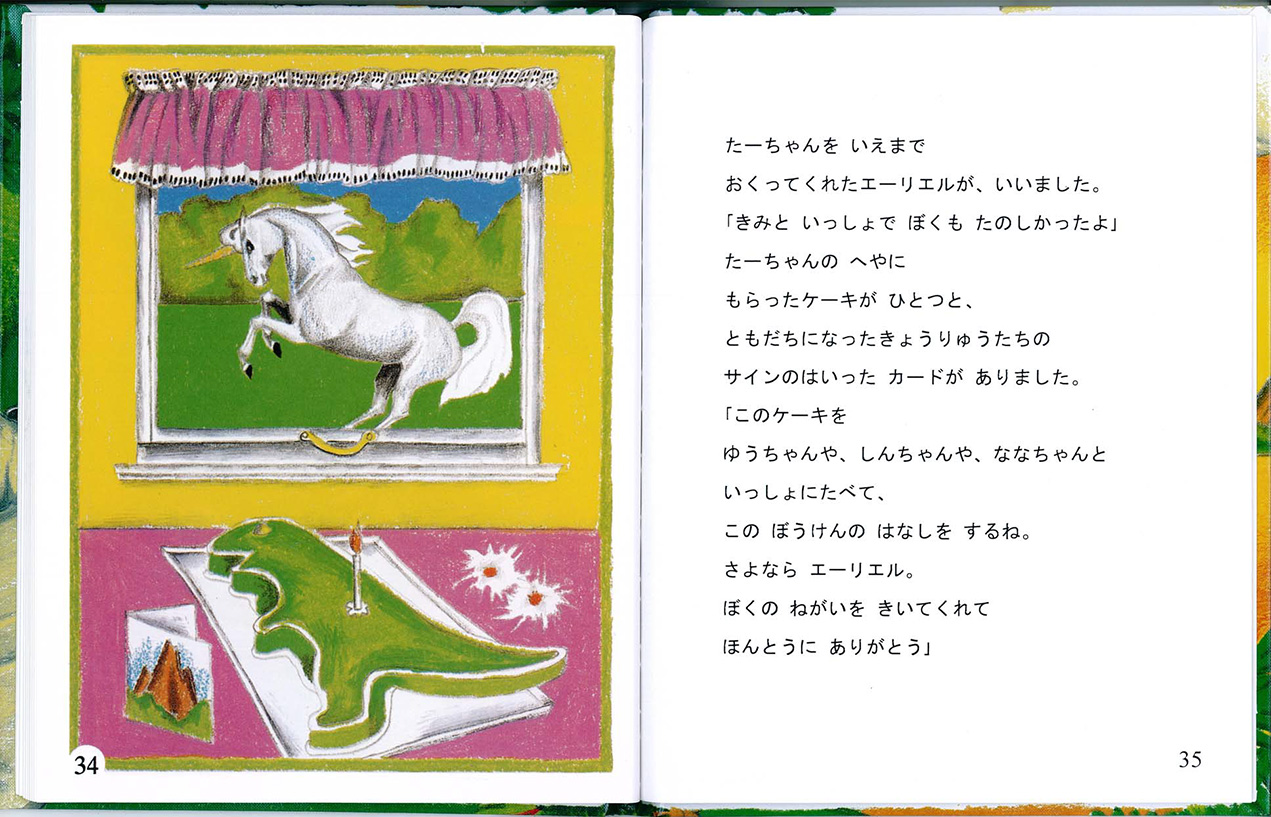 たーちゃんを いえまで
おくってくれたエーリエルが、いいました。
「きみと いっしょで ぼくも たのしかったよ」
たーちゃんの へやに
もらったケーキが ひとつと、
ともだちになったきょうりゅうたちの
サインのはいった カードが ありました。
「このケーキを
ゆうちゃんや、しんちゃんや、ななちゃんと
いっしょにたべて、
この ぼうけんの はなしを するね。
さよなら エーリエル。
ぼくの ねがいを きいてくれて
ほんとうに ありがとう」
34
35